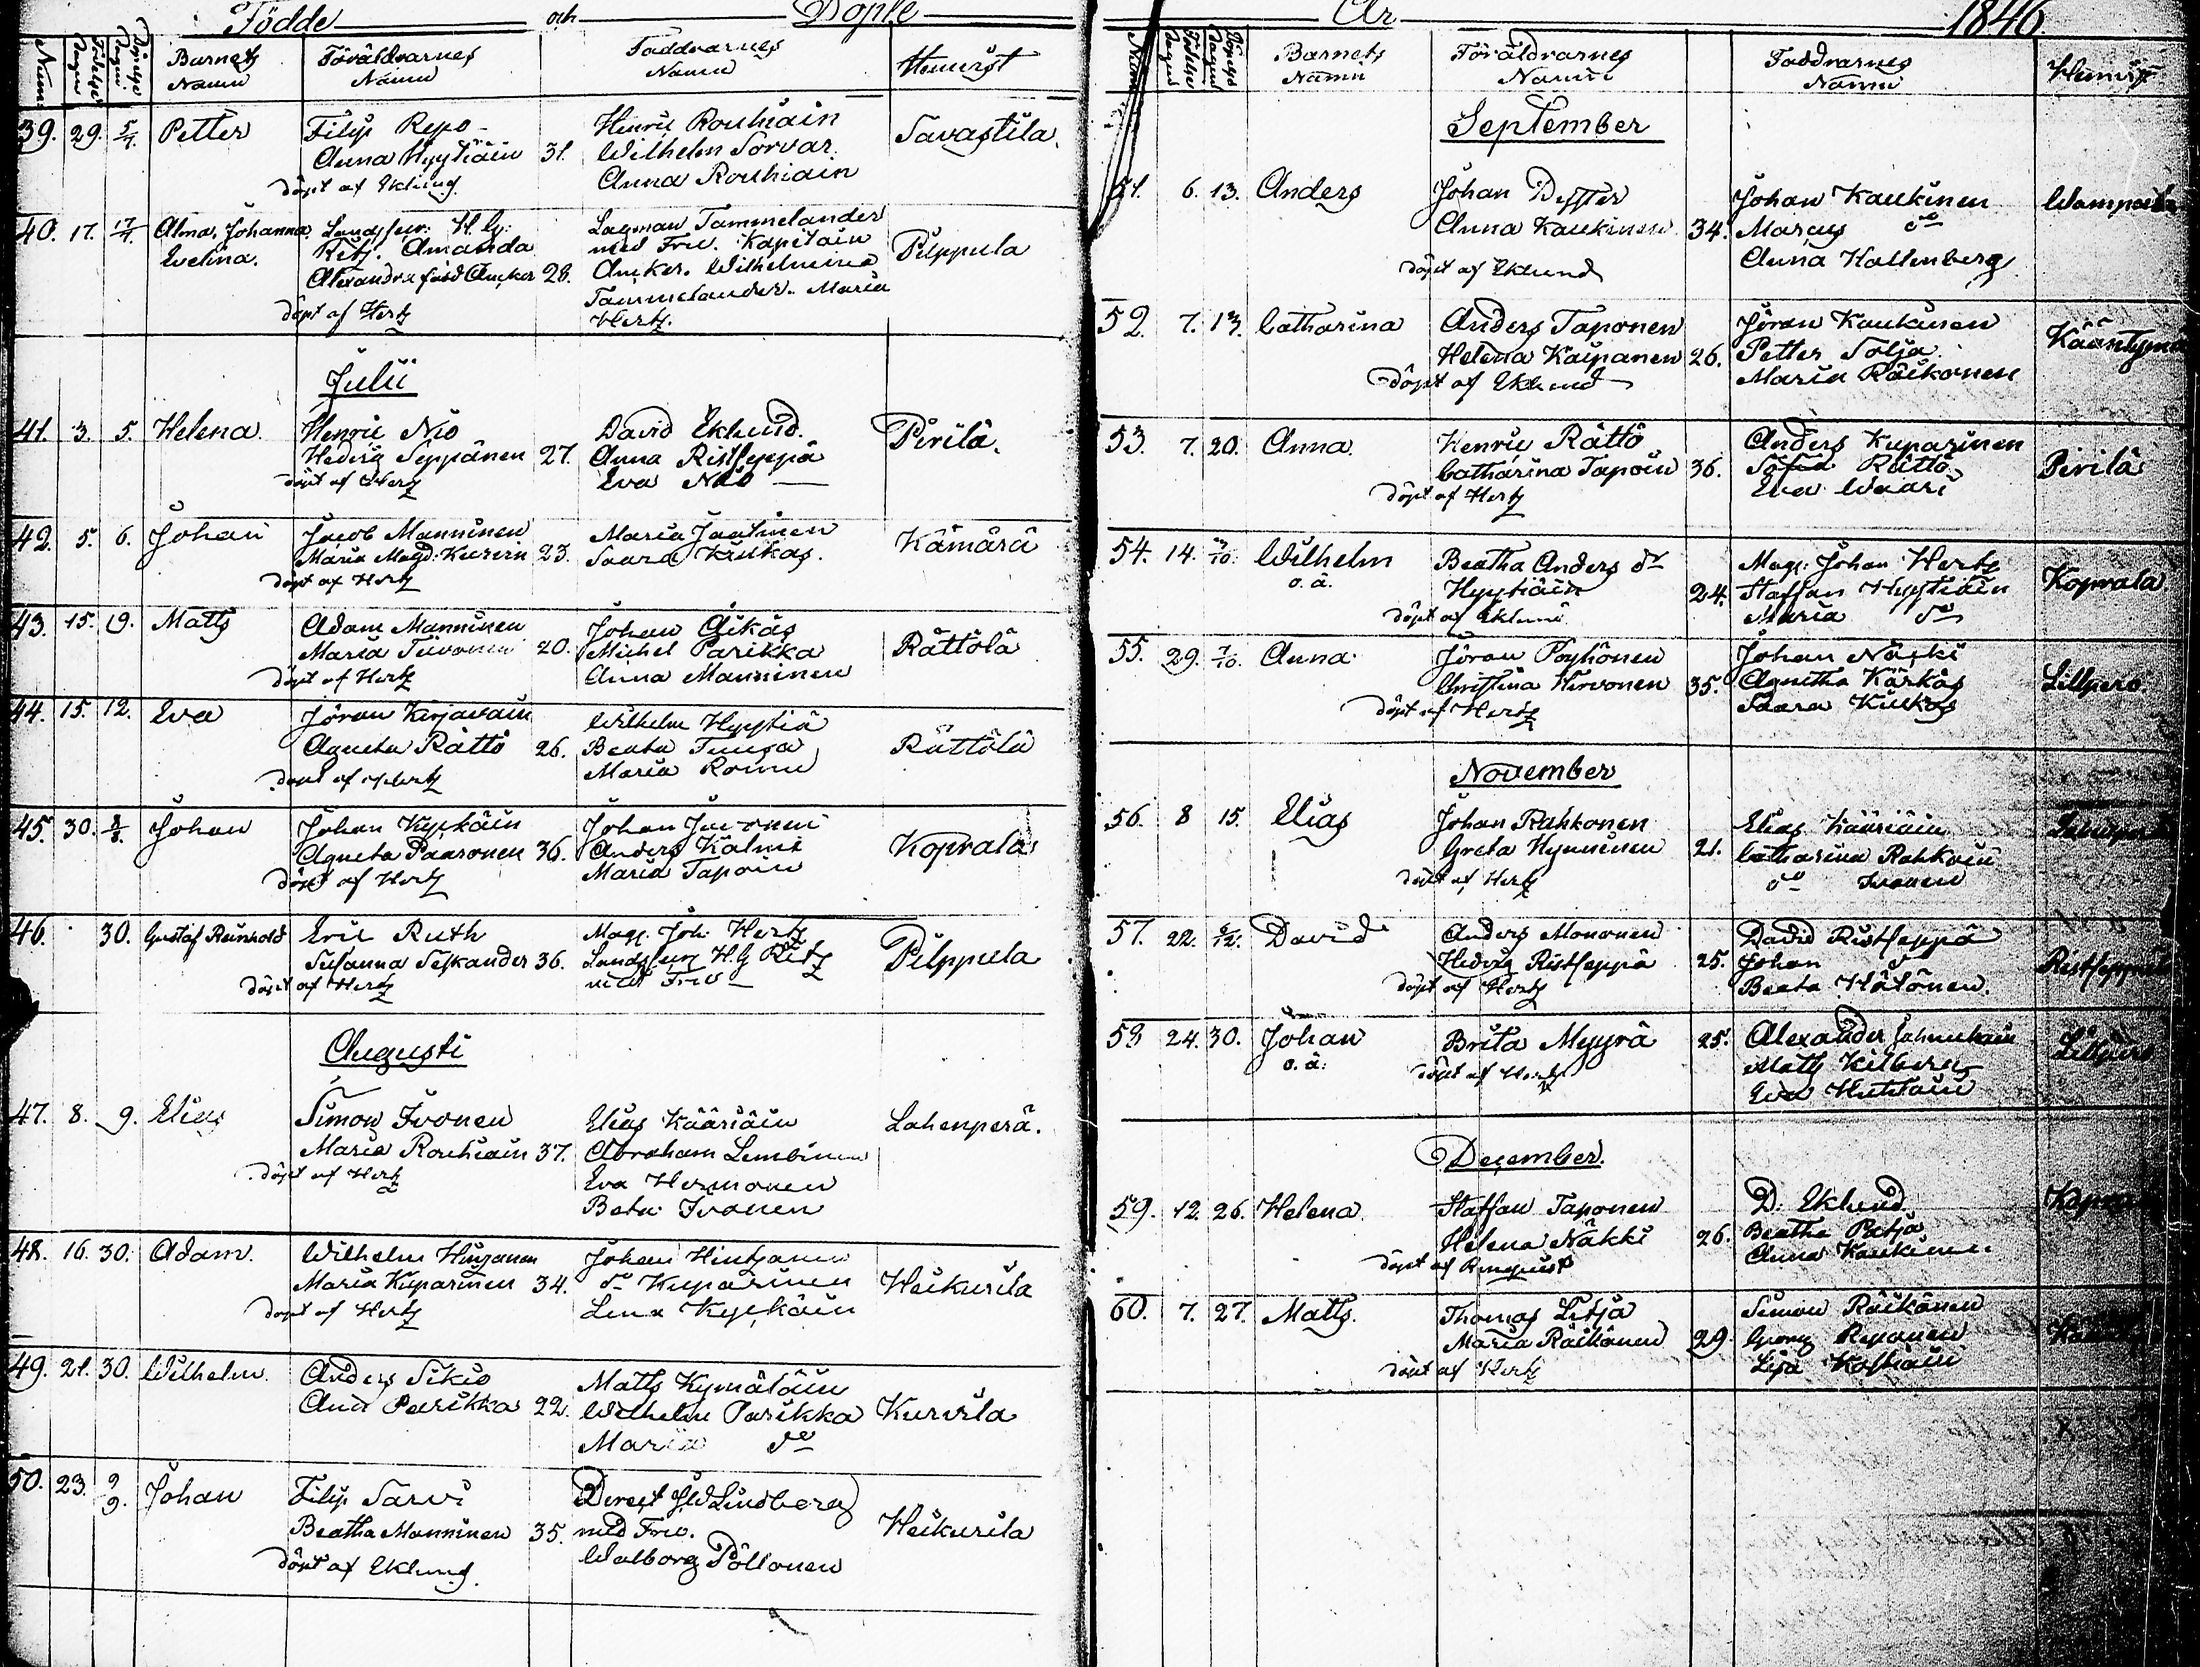 Födde och Döpte
Num: Födelse Dagen Döpelse Dagen Barnets Namn Föräldrarnes Namn Faddrarnes Namn Hemvist
39. 29. 5/7. Petter Filip Repo Henric Rouhiain Savastila.
Anna Hyytiäin 31. Wilhelm Sorvar.
döpt af Eklund Anna Rouhiain
40. 17. 17/7. Alma Johanna Landsfisc: H. G: Lagman Tammelander Pilppula
Evelina. Ritz. Amanda med Fru. Kapitain
Alexandra född Ancker 28. Ancker. Wilhelmina
Tammelander. Maria
döpt af Hertz Hertz.
Julii
41. 3. 5. Helena. Henric Nio David Eklund. Pirilä.
Hedvig Seppänen 27. Anna Ristseppä
döpt af Hertz Eva Nio
42. 5. 6. Johan Jacob Manninen Maria Jaatinen Kämärä
Maria Magd. 23. Saara Kiukas.
döpt af Hertz
43. 15. 19. Matts Adam Manninen Johan Äikäs Rättölä
Maria Toivonen 20. Michel Parikka
döpt af Hertz Anna Manninen
44. 15. 12. Eva Jöran Kirjavain Wilhelm Hyytiä Rättölä
Agneta Rättö 26. Beata
döpt af Hertz Maria
45. 30. 8/8. Johan Johan Kyckäin Johan Koprala
Agneta Paaronen 36. Anders Kälmi
döpt af Hertz Maria Tapoin
46. 30. Gustaf Reinhold Eric Ruth Mag. Joh. Hertz Pilppula
Susanna Seskander 36. Landsfisc H. G Ritz
döpt af Hertz med Fru
Augusti
47. 8. 9. Elias Simon Ivonen Elias Kääriäin Lahenperä.
Maria Rouhiain 37. Abraham Lembinen
döpt af Hertz Eva Hermonen
Beata Ivonen
48. 16. 30. Adam. Wilhelm Hinzanen Johan Hintzanen Heikurila
Maria Kuparinen 34. do Kuparinen
döpt af Hertz Lena Kyckäin
49. 21. 30. Wilhelm. Anders Sikiö Matts Kymäläin Kurvila
Anna Parikka 22. Wilhelm Parikka
Maria do
50. 23. 9/9. Johan Filip Sarvi Direct J. W Lindberg Heikurila
Beatha Manninen 35. med Fru.
döpt af Eklund. Walborg Pöllönen
År 1846
Num: Födelse Dagen Döpelse Dagen Barnets Namn Föräldrarnes Namn Faddrarnes Namn Hemvist
September
51. 6. 13. Anders Johan Dyster Johan Kaukinen
Anna Kaukinen 34. Marcus do
döpt af Eklund Anna Hallenberg
52. 7. 13. Catharina Anders Taponen Jöran Kaukinen
Helena Kaipanen 26. Petter Solja
döpt af Eklund Maria Räikönen
53. 7. 20. Anna. Henric Rättö Anders Kuparinen Pirilä
Catharina Tapoin 36. Sofia Rättö
döpt af Hertz Eva Waari
54. 14. Wilhelm Beatha Anders dr Mag. Johan Hertz Koprala
o. ä. Hyytiäin 24. Staffan Hyytiäin
döpt af Eklund Maria do
55. 29. 7/10. Anna Jöran Pöyhönen Johan Näcki Lillpero
Christina Hirvonen 35. Agnetha Kärkäs
döpt af Hertz Saara Kiukas
November
56. 8 15. Elias Johan Rahkonen Elias Kääriäin
Greta Hynninen 21. Catharina Rahkoin
döpt af Hertz do Ivonen
57. 22. 6/12. David Anders Mononen David Ristseppä Ristseppälä
Hedvig Ristseppä 25. Johan do
döpt af Hertz Beata Hötönen.
58 24. 30. Johan Brita Myyrä 25. Alexander
o. ä. döpt af Hertz Matts Kilberg
Eva
December.
59. 12. 26. Helena Staffan Taponen D. Eklund
Helena Näkki 26. Beatha Patja
döpt af Renquist Anna Kaukinen.
60. 7. 27. Matts. Thomas Litja Simon Räikönen
Maria Räikönen 29. Georg Reponen
döpt af Hertz Lisa